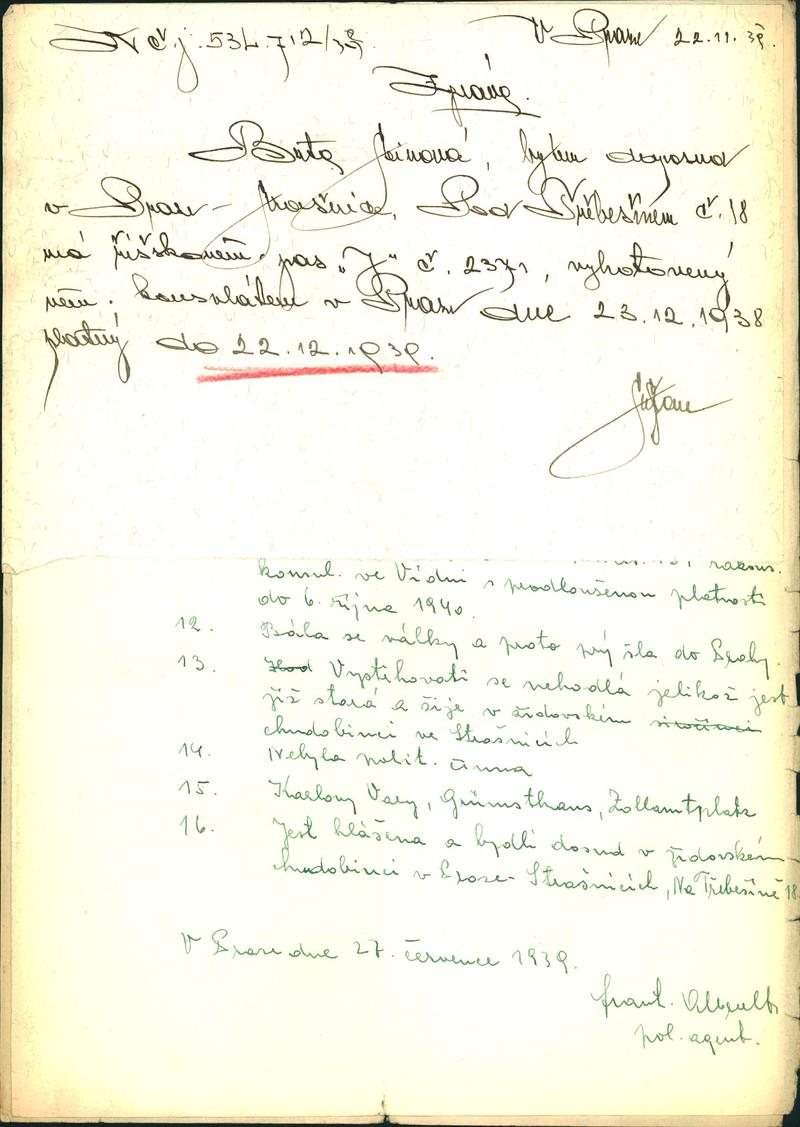 N č.j. 534.712/39
V Praze 22.11.39.
Zpráva.
Berta, bytem doposud
v Praze – Strašnice, Pod Třebešínem č. 18
má říšskoněm. pas „J" č. 2371, vyhotovený
něm. konsulátem v Praze dne 23.12.1938
platný do 22.12.1939.
rakous.
konsul. ve Vídni s prodlouženou platností
do 6. října 1940.
12. Bála se války a proto prý šla do Prahy.
13. Vystěhovati se nehodlá jelikož jest
již stará a žije v židovském
chudobinci ve Strašnicích
14. Nebyla polit. činna
15. Karlovy Vary, Zollamtplatz
16. Jest hlášena a bydlí dosud v židovském
chudobinci v Praze - Strašnicích, Na Třebešíně 18
V Praze dne 27. července 1939.
frant.
pol. agent.